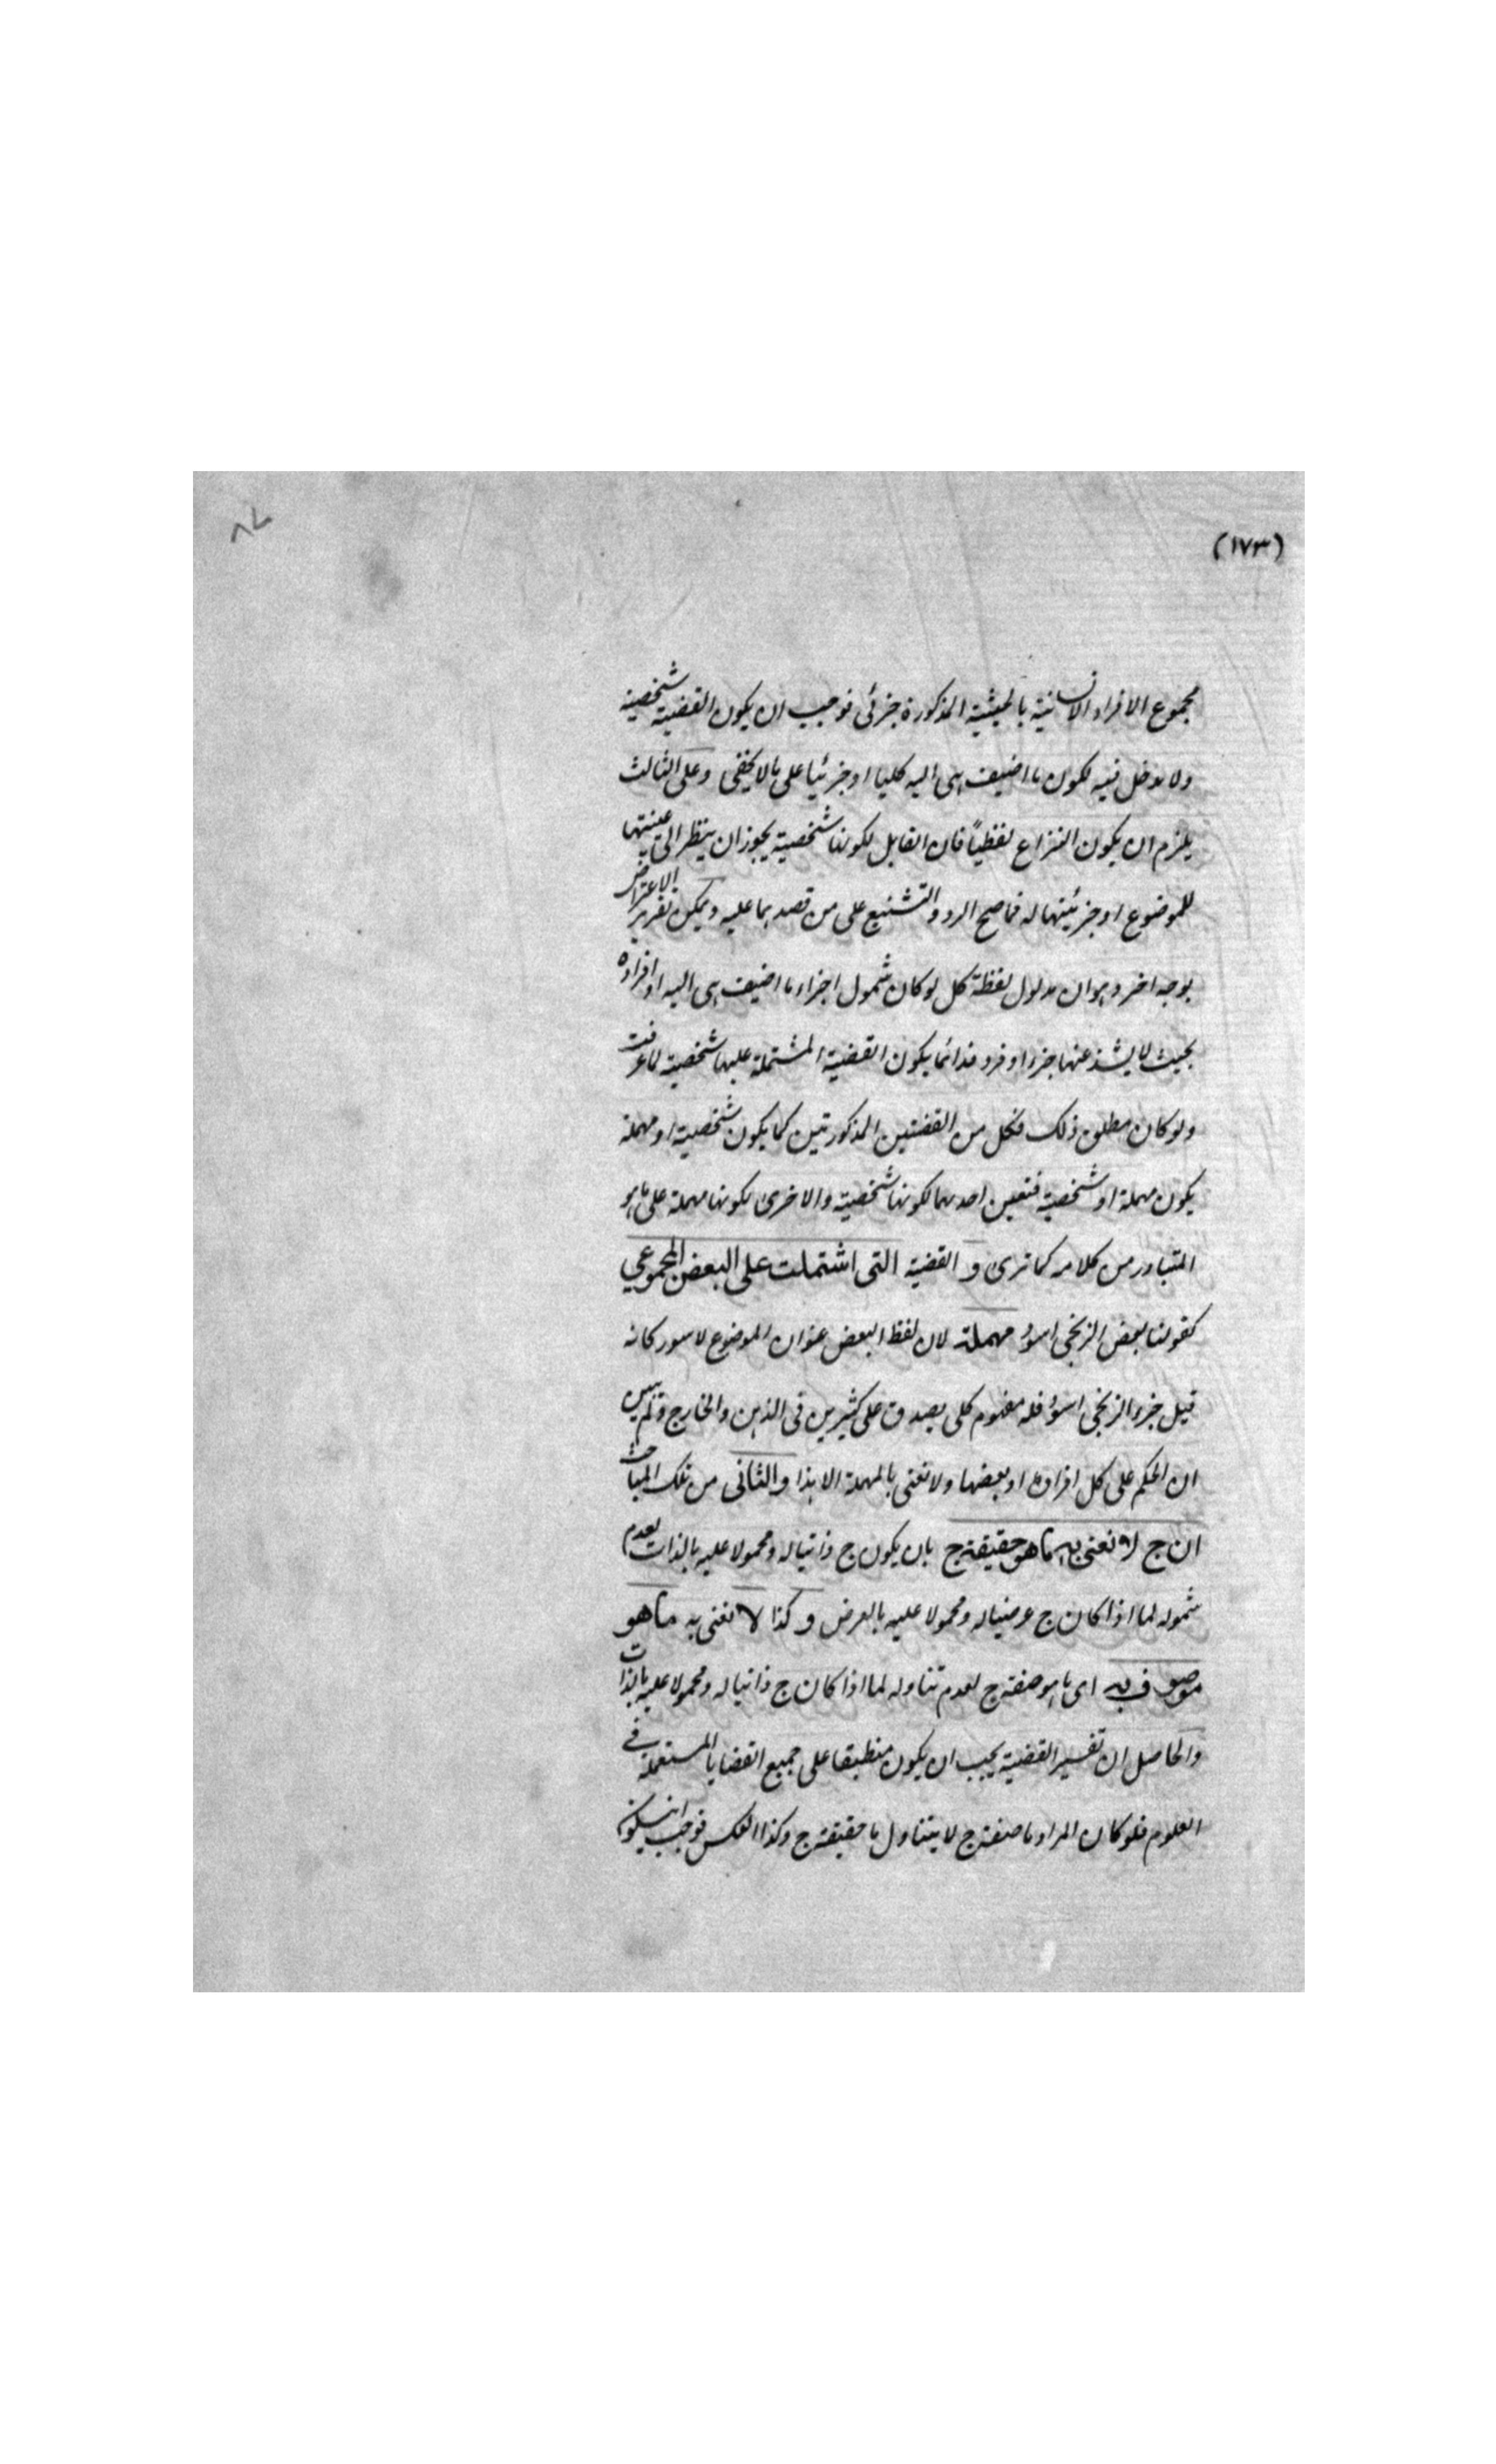 (١٧٣)
٨٧
مجموع الافراد الانسانية بالحيثية المذكورة جزئى فوجب ان يكون القضية شخصية
ولا مدخل فيه لكون ما اضيف هى اليه كليا او جزئيا على ما لا يخفى وعلى الثالث
يلزم ان يكون النزاع لفظياً فان القايل لكونها شخصية يجوز ان ينظر الى عينيتها
للموضوع او جزئيتها له فما صح الرد والتشنيع على من قصد بما عليه ويمكن تقرير الاعتراض
بوجه اخر وهو ان مدلول لفظة كل لو كان شمول اجزاء ما اضيف هى اليه او افراده
بحيث لا يشذ عنها جزء او فرد فدائما يكون القضية المشتملة عليها شخصية لما عرفت
ولو كان مطلق ذلك فكل من القضيتين المذكورتين كما يكون شخصية او مهملة
يكون مهملة او شخصية فتعين احدهما لكونها شخصية والاخرى لكونها مهملة على ما هو
المتبادر من كلامه كما ترى و القضية التى اشتملت على البعض المجموعي
كقولنا بعض الزنجى اسود مهملة لان لفظ البعض عنوان الموضوع لا سور كانه
قيل جزء الزنجى اسود فله مفهوم كلى يصدق على كثيرين فى الذهن والخارج ولم يبين
ان الحكم على كل افراده او بعضها ولا نعنى بالمهملة الا هذا والثانى من تلك المباحث
ان ج لا نعنى به ما هو حقيقته ج بان يكون ج ذاتيا له ومحمولا عليه بالذات لعدم
شموله لما اذا كان ج عرضيا له ومحمولا عليه بالعرض و كذا لا نعنى به ما هو
موصوف به اى ما هو صفته ج لعدم تناوله لما اذا كان ج ذاتيا له ومحمولا عليه بالذات
والحاصل ان تفسير القضية يجب ان يكون منطبقا على جميع القضايا المستعملة في
العلوم فلو كان المراد ما صفته ج لا يتناول ما حقيقته ج وكذا العكس فوجب ان يكون